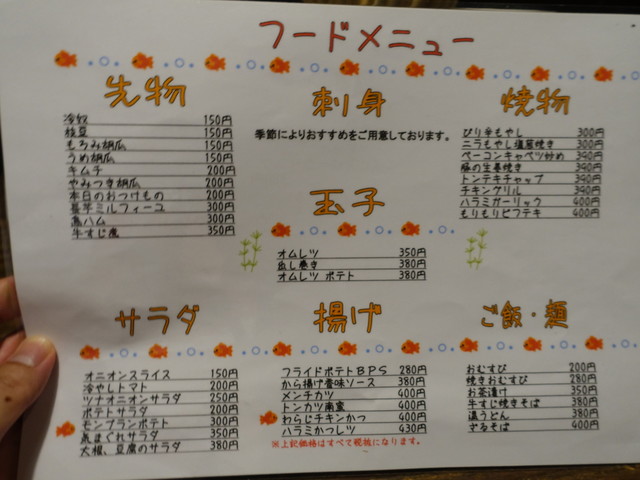 フードメニュー
先物
冷奴 150円
枝豆 150円
もろみ胡瓜 150円
うめ胡瓜 150円
キムチ 200円
やみつき胡瓜 200円
本日のおつけもの 200円
長芋ミルフィーユ 300円
馬ハム 300円
牛すじ煮 350円
刺身
季節によりおすすめをご用意しております。
玉子
オムレツ 350円
出し巻き 380円
オムレツ ポテト 380円
焼物
ぴり辛もやし 300円
ニラもやし塩昆焼き 300円
ベーコンキャベツ炒め 390円
豚の生姜焼き 390円
トンテキチャップ 390円
チキングリル 390円
ハラミガーリック 400円
もりもりビフテキ 400円
サラダ
オニオンスライス 150円
冷やしトマト 200円
ツナオニオンサラダ 250円
ポテトサラダ 200円
モンブランポテト 300円
気まぐれサラダ 350円
大根、豆腐のサラダ 380円
揚げ
フライドポテトBPS 280円
から揚げ香味ソース 380円
メンチカツ 400円
トンカツ南蛮 400円
わらじチキンかつ 400円
ハラミかつレツ 430円
※上記価格はすべて税抜になります。
ご飯・麺
おむすび 200円
焼きおむすび 280円
お茶漬け 350円
牛すじ焼きそば 380円
温うどん 380円
ざるそば 400円